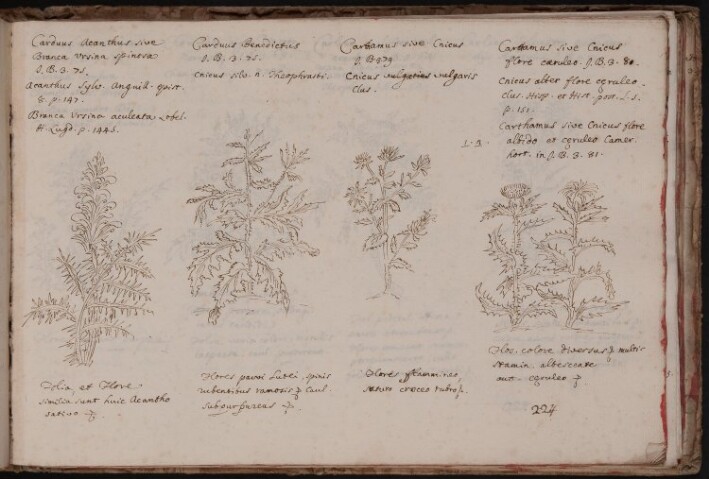 Carduus Acanthus sive
Branca Ursina spinosa
J.B.3.75.
Acanthus Sylv. Anguil.
p. 147.
Branca Ursina aculeata Lobel.
H. Lugd. p. 1445.
Carduus Benedictus
J.B.3.75.
Cnicus silv. Theophrasti.
Carthamus sive Cnicus
J.B.3.79.
Cnicus vulgaris
clus.
Carthamus sive Cnicus
flore caeruleo. J.B.3.80.
Cnicus alter flore caeruleo.
Clus. Hisp. et Hist. post. L.
p. 151.
Carthamus sive Cnicus flore
L.3. albido et caeruleo Camer.
hort. in J.B.3.81.
Folia et Flore
similia sunt huic Acantho
sativo
Flores parvi Lutei, spinis
rubentibus ramosis Caul.
subpurpureas
Flores
croceo rubro
Flos. colore diversus multis
stamin. albescente
aut. caeruleo
224